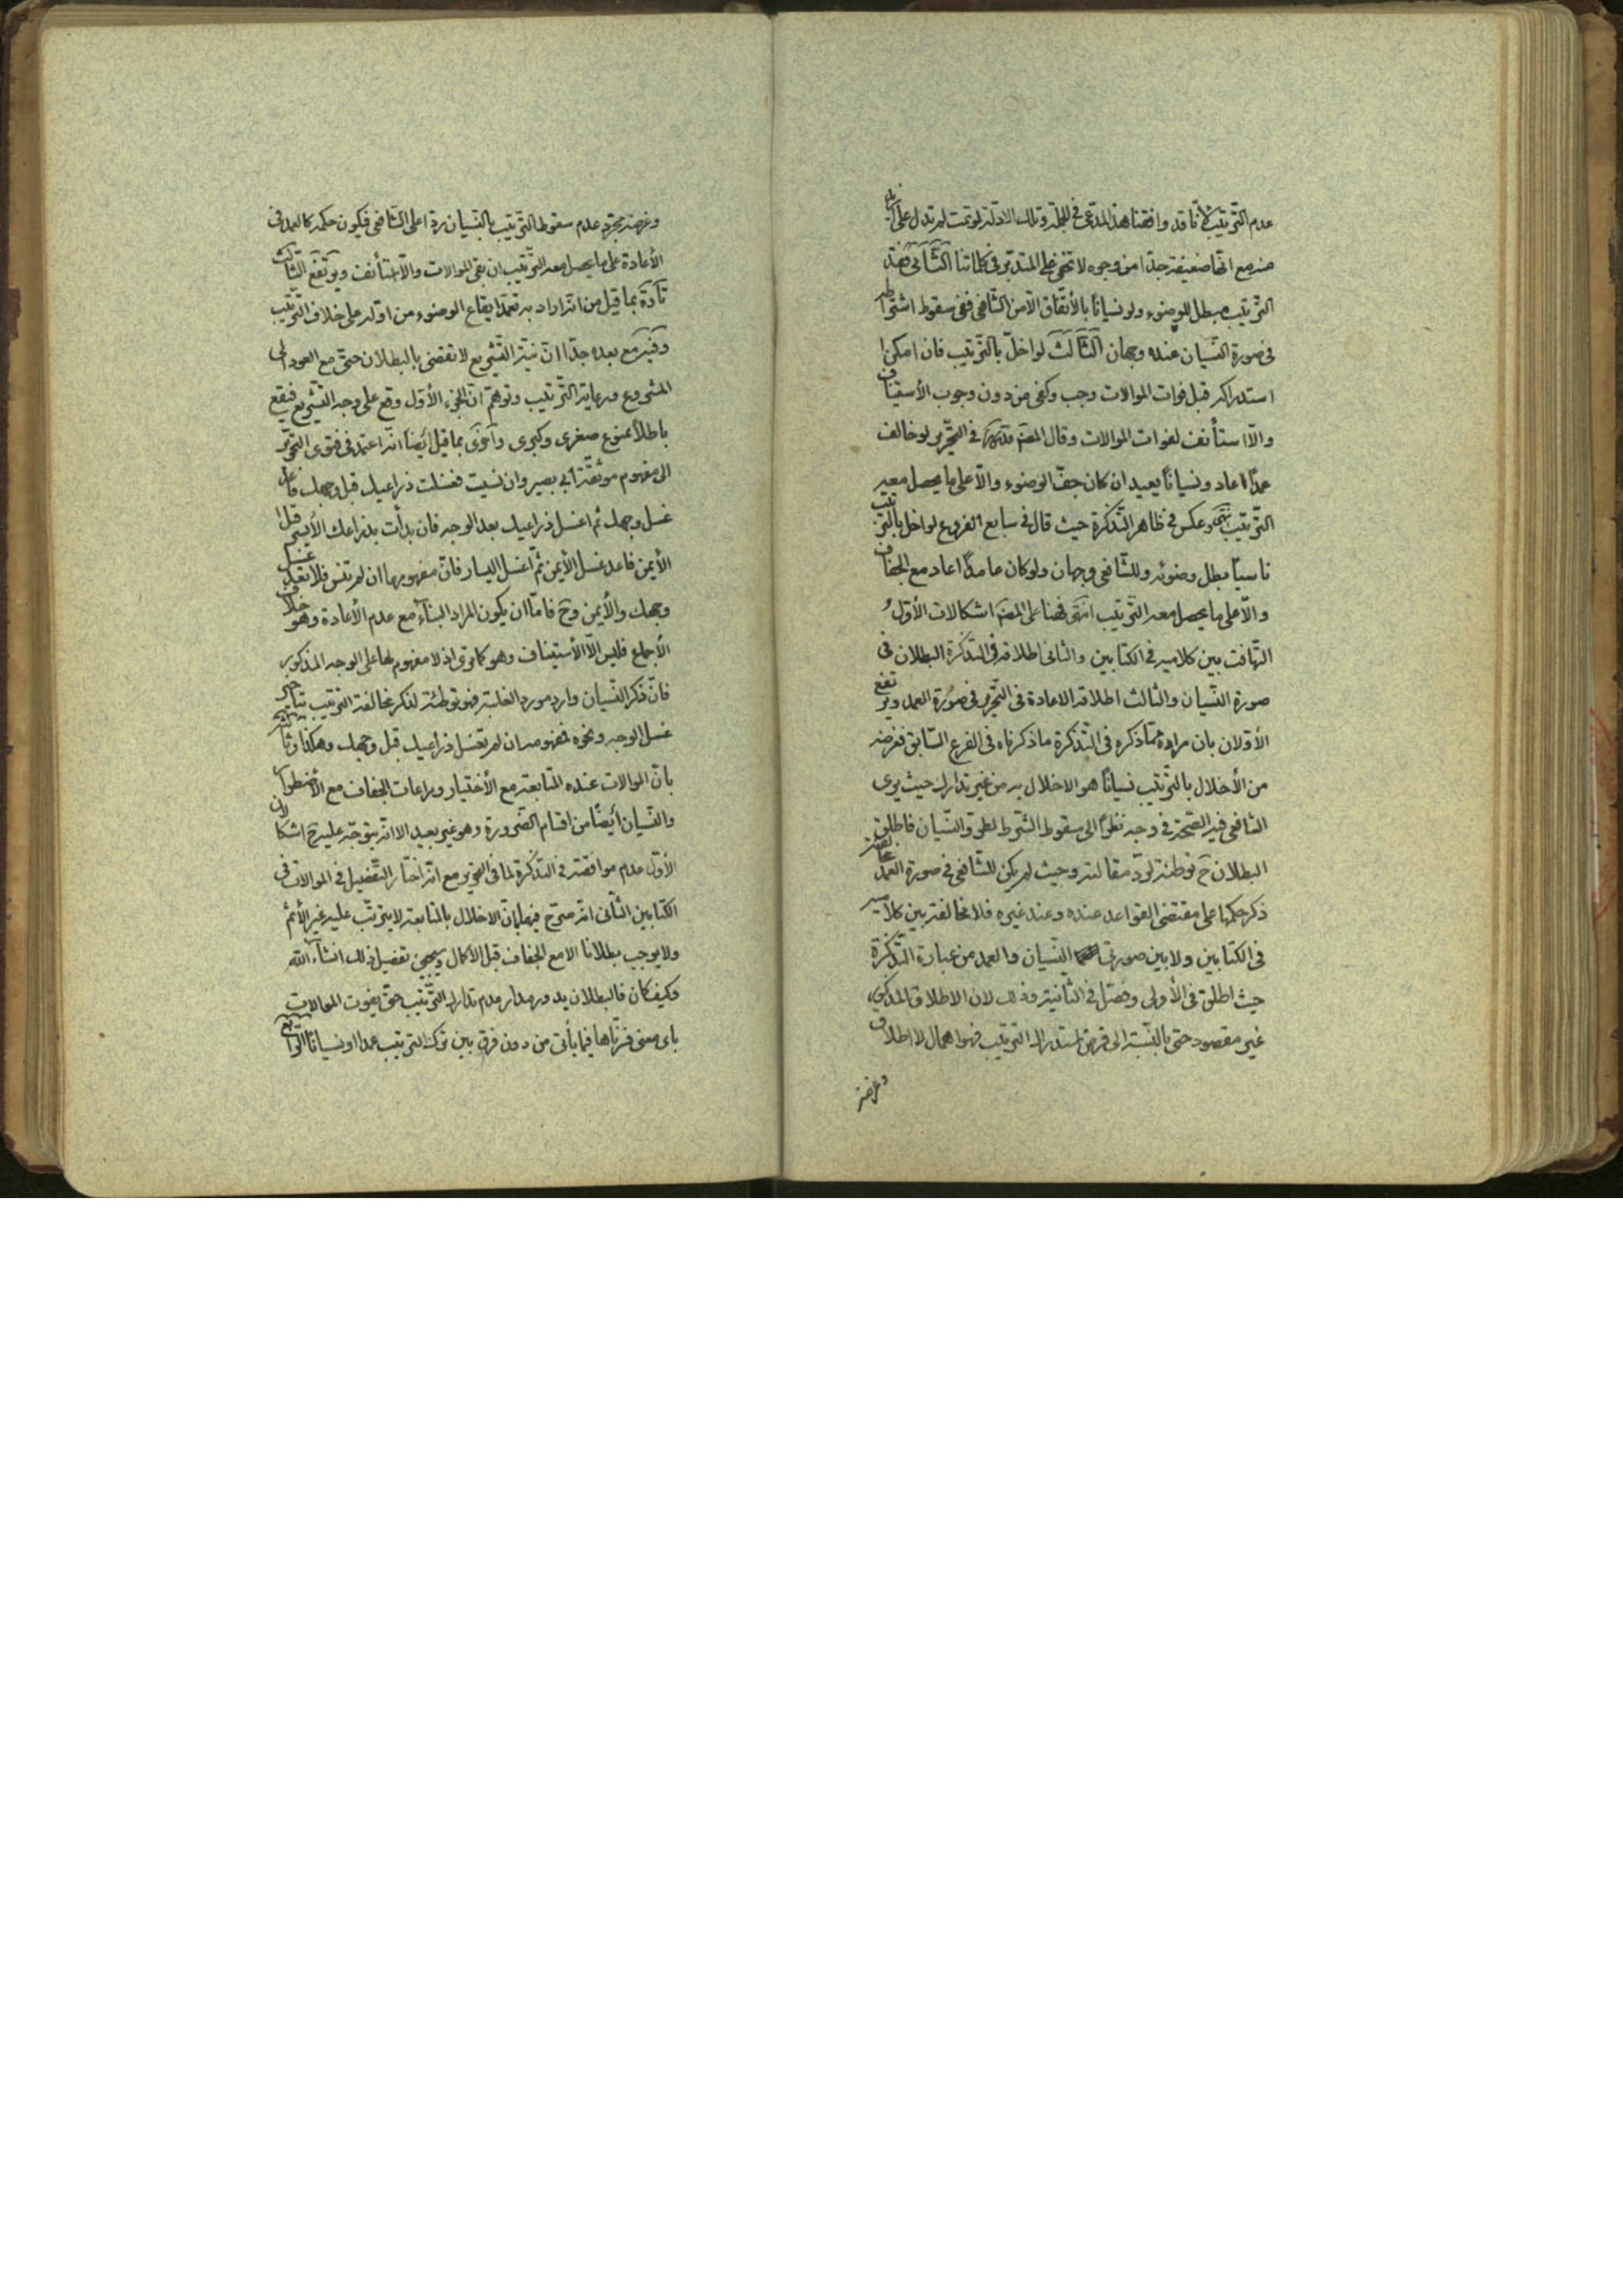 عدم الترتيب لأنا قد وافقنا هذا المدعى في الجملة وتلك الادلة لو تمت لم تدل على
منه مع انها ضعيفة جدا من وجوه لا تخفى على المتدبر في كلماتنا الثاني فقد
الترتيب مبطل للوضوء ولو نسيانا بالأتفاق الا من الشافعي ففي سقوط اشتراطه
في صورة النسيان عنده وجهان الثالث لو اخل بالترتيب فان امكن
استدراكه قبل فوات الموالات وجب وكفى من دون وجوب الأستيناف
والا استأنف لفوات الموالات وقال المصنف قدس سره في التحرير لو خالف
عمدا اعاد ونسيانا يعيد ان كان جف الوضوء والا على ما يحصل معه
الترتيب وعكس في ظاهر التذكرة حيث قال في سابع الفروع لو اخل بالترتيب
ناسيا بطل وضوئه وللشافعي وجهان ولو كان عامدا اعاد مع الجفاف
والا على ما يحصل معه الترتيب انتهى فهنا على المصنف اشكالات الأول
التهافت بين كلاميه في الكتابين والثاني اطلاقه في التذكرة البطلان في
صورة النسيان والثالث اطلاقه الاعادة في التحرير في صورة العمد ويرتفع
الأولان بان مراده مما ذكره في التذكرة ما ذكرناه في الفرع السابق فغرضه
من الأخلال بالترتيب نسيانا هو الاخلال به من غير تدارك حيث يرى
الشافعي فيه الصحة في وجه نظرا الى سقوط الشرط لطرو النسيان فاطلق
البطلان ح توطئة لرد مقالته وحيث لم يكن للشافعي في صورة العمد مخالفة
ذكر حكمها على مقتضى القواعد عنده وعند غيره فلا مخالفة بين كلاميه
في الكتابين ولا بين صورتي النسيان والعمد من عبارة التذكرة
حيث اطلق في الأولى وفصل في الثانية وذلك لان الاطلاق المذكور
غير مقصود حتى بالنسبة الى فرض استدراك الترتيب فهو اهمال لا اطلاق
وغرضه
وغرضه مجرد عدم سقوط الترتيب بالنسيان ردا على الشافعي فيكون حكمه كالعمد في
الأعادة على ما يحصل معه الترتيب ان بقى الموالات والا استأنف ويرتفع الثالث
تارة بما قيل من انه اراد به تعمد ايقاع الوضوء من اوله على خلاف الترتيب
وفيه مع بعده جدا ان نية التشريع لا تقضى بالبطلان حتى مع العود الى
المشروع ورعاية الترتيب وتوهم ان الجزء الأول وقع على وجه التشريع فيقع
باطلا ممنوع صغرى وكبرى واخرى بما قيل ايضا انه اعتمد في فتوى التحرير
الى مفهوم موثقة أبي بصير وان نسيت فغسلت ذراعيك قبل وجهك فاعد
غسل وجهك ثم اغسل ذراعيك بعد الوجه فان بدأت بذراعك الأيسر قبل
الأيمن فاعد غسل الأيمن ثم اغسل اليسار فان مفهومها ان لم تنس فلا تعد غسل
وجهك والأيمن وح فاما ان يكون المراد البناء مع عدم الأعادة وهو خلاف
الأجماع فليس الا الأستيناف وهو كما ترى اذ لا مفهوم لها على الوجه المذكور
فان ذكر النسيان وارد مورد الغلبة فهو توطئة لذكر مخالفة الترتيب بتأخير
غسل الوجه ونحوه فمفهومه ان لم تغسل ذراعيك قبل وجهك وهكذا وثالثة
بان الموالات عنده المتابعة مع الأختيار ومراعات الجفاف مع الأضطرار
والنسيان أيضا من اقسام الضرورة وهو غير بعيد الا انه يتوجه عليه ح اشكالان
الأول عدم موافقته في التذكرة لما في التحرير مع انه اختار التفصيل في الموالات في
الكتابين الثاني انه صرح فيهما بان الاخلال بالمتابعة لا يترتب عليه غير الأثم
ولا يوجب بطلانا الا مع الجفاف قبل الاكمال ويجيئ تفصيل ذلك انشاء الله
وكيف كان فالبطلان يدور مدار عدم تدارك الترتيب حتى يفوت الموالات
باى معنى فسرناها فيما يأتى من دون فرق بين ترك الترتيب عمدا او نسيانا الرابع